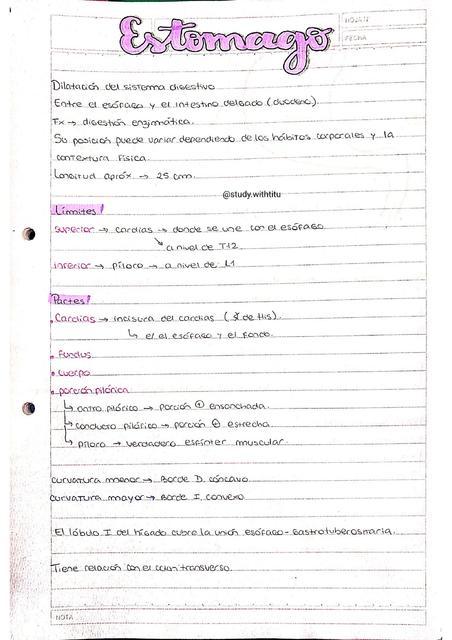 Estomago
HOJA N°
FECHA
Dilatación del sistema digestivo
Entre el esófago y el intestino delgado (duodeno).
Fx → digestión enzimática.
Su posición puede variar dependiendo de los hábitos corporales y la
contextura física.
Longitud apróx → 25 cm.
@study.withtitu
Límites
Superior → cardias → donde se une con el esófago
↘ a nivel de T12.
Inferior → píloro → a nivel de L1
Partes
• Cardias → incisura del cardias ( de His).
↳ e/ el esófago y el fondo.
• Fundus
• Cuerpo
• porción pilórica
↳ antro pilórico → porción ⊕ ensanchada.
↳ conducto pilórico → porción ⊕ estrecha.
↳ píloro → verdadero esfínter muscular.
curvatura menor → Borde D. cóncavo.
curvatura mayor → Borde I. convexo
El lóbulo I del hígado cubre la unión esófago-
Tiene relación con el colon transverso.
NOTA